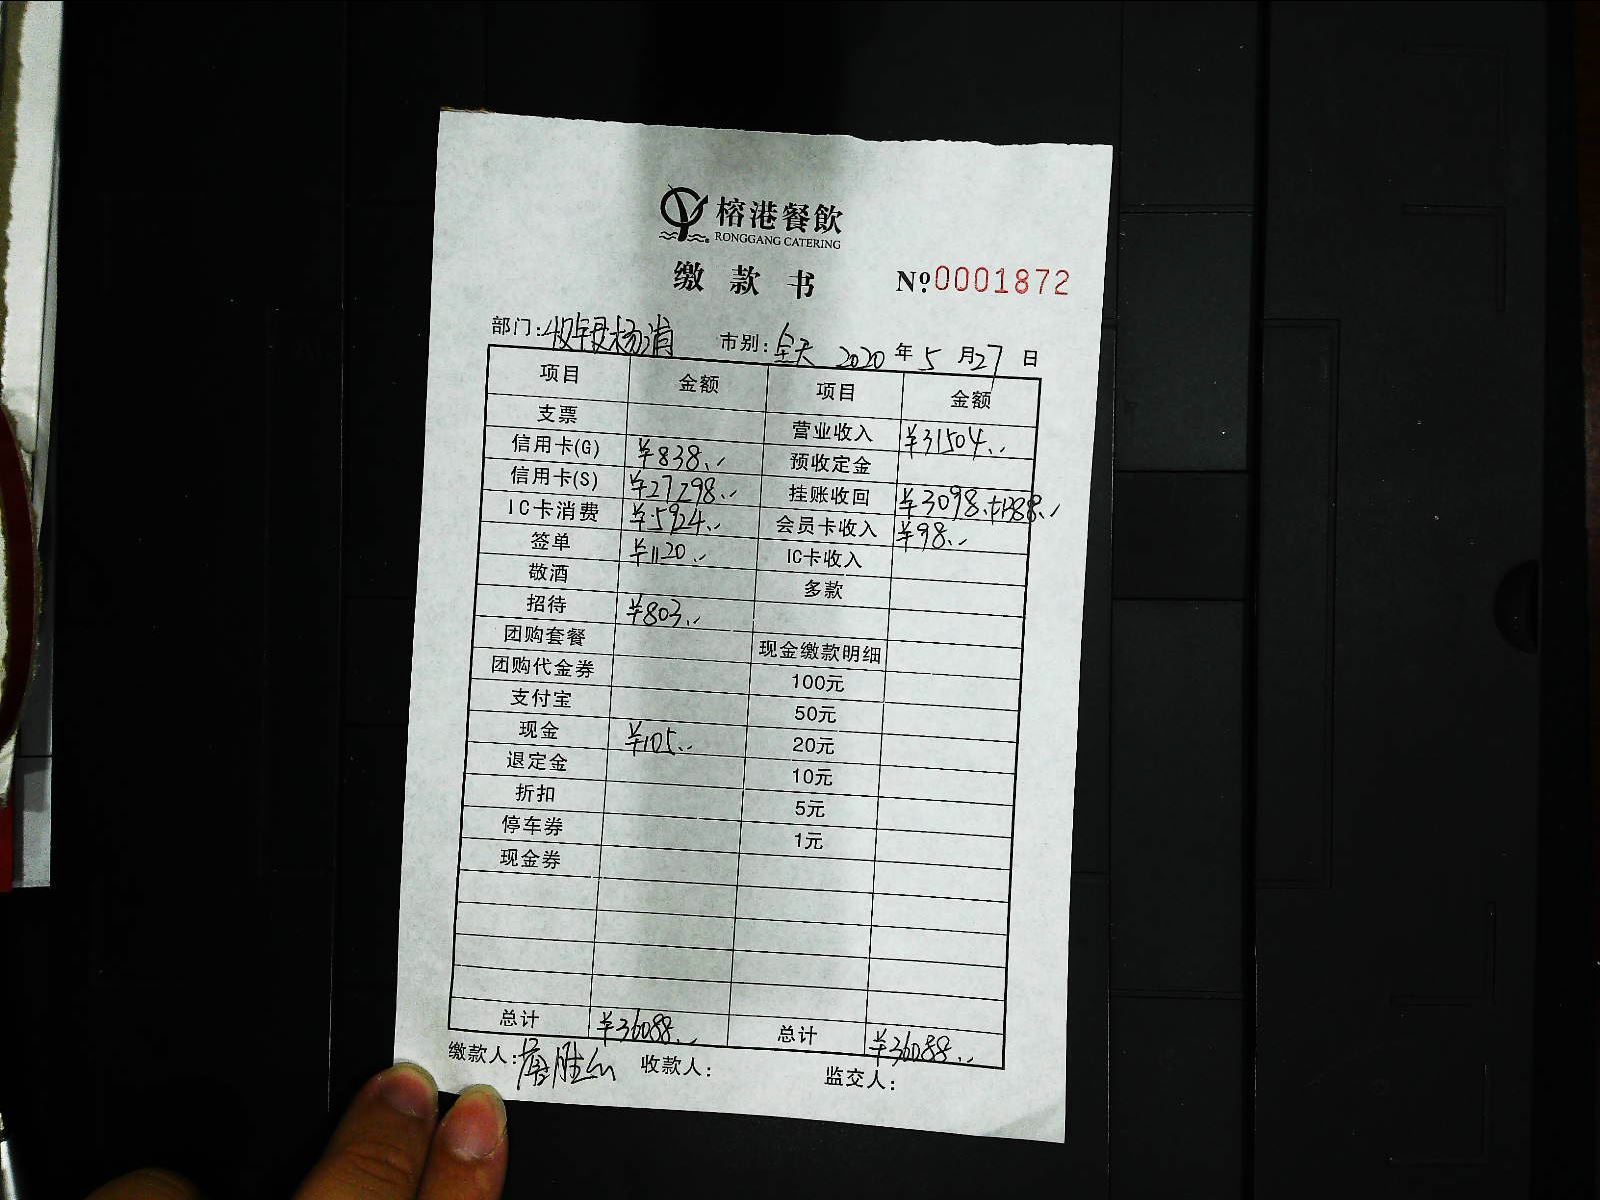 榕港餐飲
RONGGANG CATERING
缴款书 №0001872
部门:收银 市别:全天 2020年5月27日
项目 金额 项目 金额
支票 营业收入 ¥31504.
信用卡(G) ¥838. 预收定金
信用卡(S) ¥27298. 挂账收回 ¥3098.+1388.
IC卡消费 ¥5924. 会员卡收入 ¥98.
签单 ¥1120. IC卡收入
敬酒 多款
招待 ¥803.
团购套餐 现金缴款明细
团购代金券 100元
支付宝 50元
现金 ¥105. 20元
退定金 10元
折扣 5元
停车券 1元
现金券
总计 ¥36088. 总计 ¥36088.
缴款人: 收款人: 监交人: